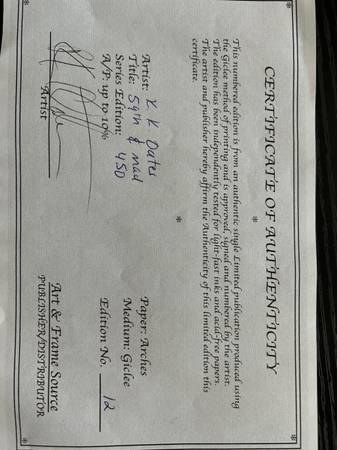 CERTIFICATE OF AUTHENTICITY
This numbered edition is from an authentic single Limited publication produced using
the Giclee method of printing and is approved, signed and numbered by the artist.
The edition has been independently tested for light-fast inks and acid-free papers.
The artist and publisher hereby affirm the Authenticity of this limited edition this
certificate.
Artist: K K Oates
Title: Sgm & mad
Series Edition: 450
A/P: up to 10%
Paper: Arches
Medium: Giclee
Edition No. 12
Artist
Art & Frame Source
PUBLISHER/DISTRIBUTOR